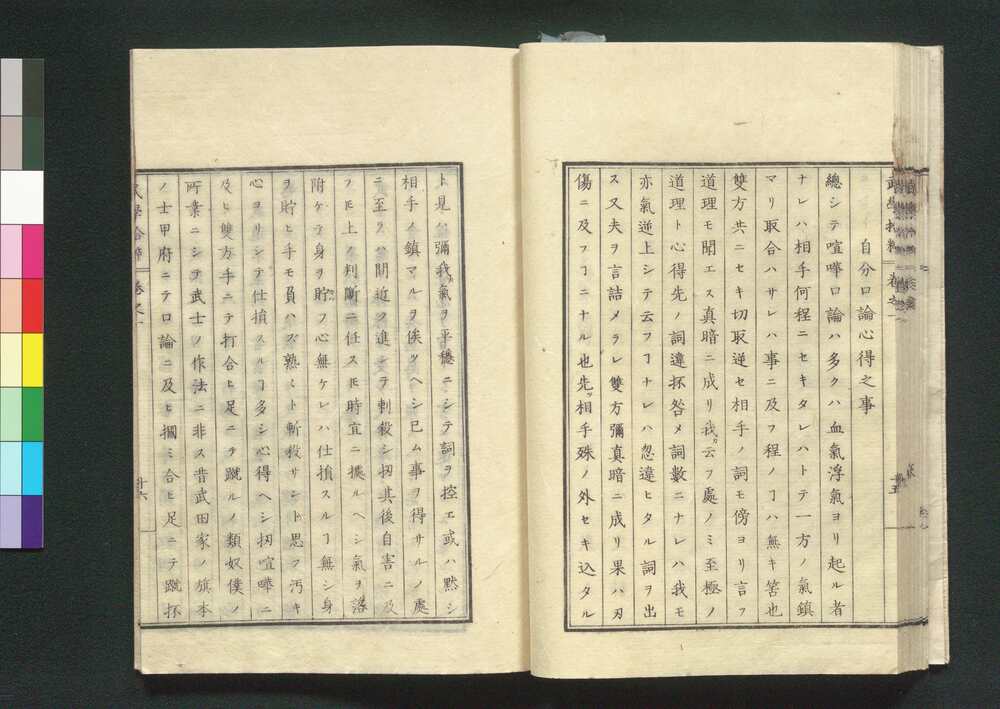 自分口論心得之事
總シテ喧嘩口論ハ多クハ血氣浮氣ヨリ起ル者
ナレハ相手何程ニセキタレハトテ一方ノ氣鎮
マリ取合ハサレハ事ニ及フ程ノヿハ無キ筈也
雙方共ニセキ切取逆セ相手ノ詞モ傍ヨリ言フ
道理モ聞エス真暗ニ成リ我カ云フ處ノミ至極ノ
道理ト心得先ノ詞違抔咎メ詞數ニナレハ我モ
亦氣逆上シテ云フヿナレハ忽違ヒタル詞ヲ出
ス又夫ヲ言詰メラレ雙方彌真暗ニ成リ果ハ刃
傷ニ及フヿニナル也先ツ相手殊ノ外セキ込タル
ト見ハ彌我カ氣ヲ平穩ニシテ詞ヲ控エ或ハ黙シ
相手ノ鎮マルヲ俟ツヘシ已ム事ヲ得サルノ處
ニ至ラハ間近ク進ミテ刺殺シ扨其後自害ニ及
フ𪜈上ノ判斷ニ任ス𪜈時宜ニ據ルヘシ氣ヲ落
附ケテ身ヲ貯フ心無ケレハ仕損スルヿ無シ身
ヲ貯ヒ手モ負ハズ熟ミト斬殺リシト思フ汚キ
心ヨリシテ仕損スルヿ多シ心得ヘシ扨喧嘩ニ
及ヒ雙方手ニテ打合ヒ足ニテ蹴ルノ類奴僕ノ
所業ニシテ武士ノ作法ニ非ス昔武田家ノ旗本
ノ士甲府ニテ口論ニ及ヒ摑ミ合ヒ足ニテ蹴抔
卷之一
廿六